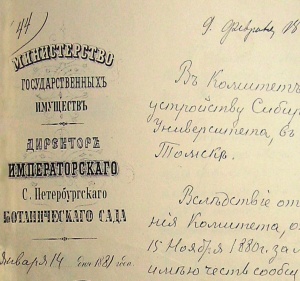 44
9. Февраля 18
МИНИСТЕРСТВО
ГОСУДАРСТВЕННЫХЪ
ИМУЩЕСТВЪ
ДИРЕКТОРЪ
ИМПЕРАТОРСКАГО
С. Петербургскаго
БОТАНИЧЕСКАГО САДА
Января 14 дня 1881 года.
Въ Комитетъ
устройству Сибир
Университета, въ
Томскѣ.
Вслѣдствіе от
нія Комитета, о
15 Ноября 1880 г. за
имѣю честь сообщ